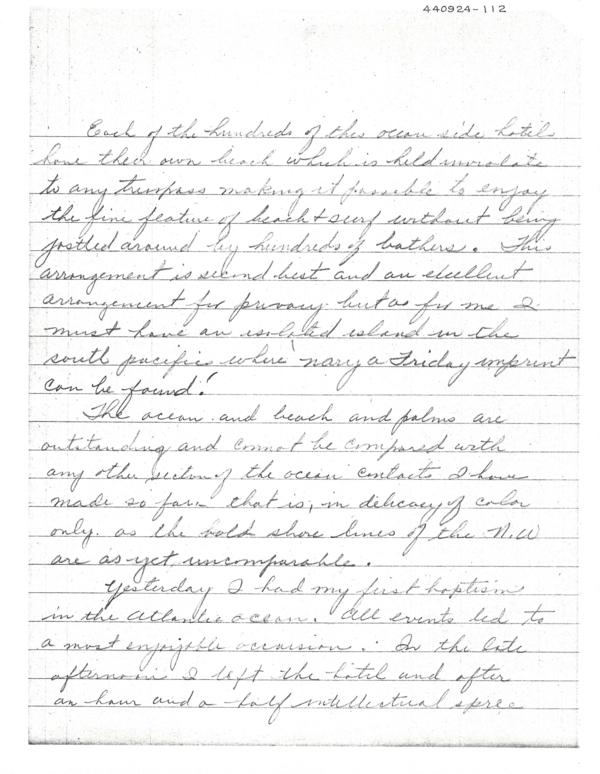 440924-112
Each of the hundreds of this ocean side hotels
have their own beach which is held inviolate
to any trespass making it possible to enjoy
the fine feature of beach & surf without being
jostled around by hundreds of bathers. This
arrangement is second best and an excellent
arrangement for privacy. but as for me I
must have an isolated island in the
south pacific where nary a Friday imprint
can be found!
The ocean and beach and palms are
outstanding and cannot be compared with
any other section of the ocean contacts I have
made so far. that is, in delicacy of color
only. as the bold shore lines of the N.W
are as yet uncomparable.
Yesterday I had my first baptism
in the Atlantic ocean. All events led to
a most enjoyable occaision. In the late
afternoon I left the hotel and after
an hour and a half intellectual spree